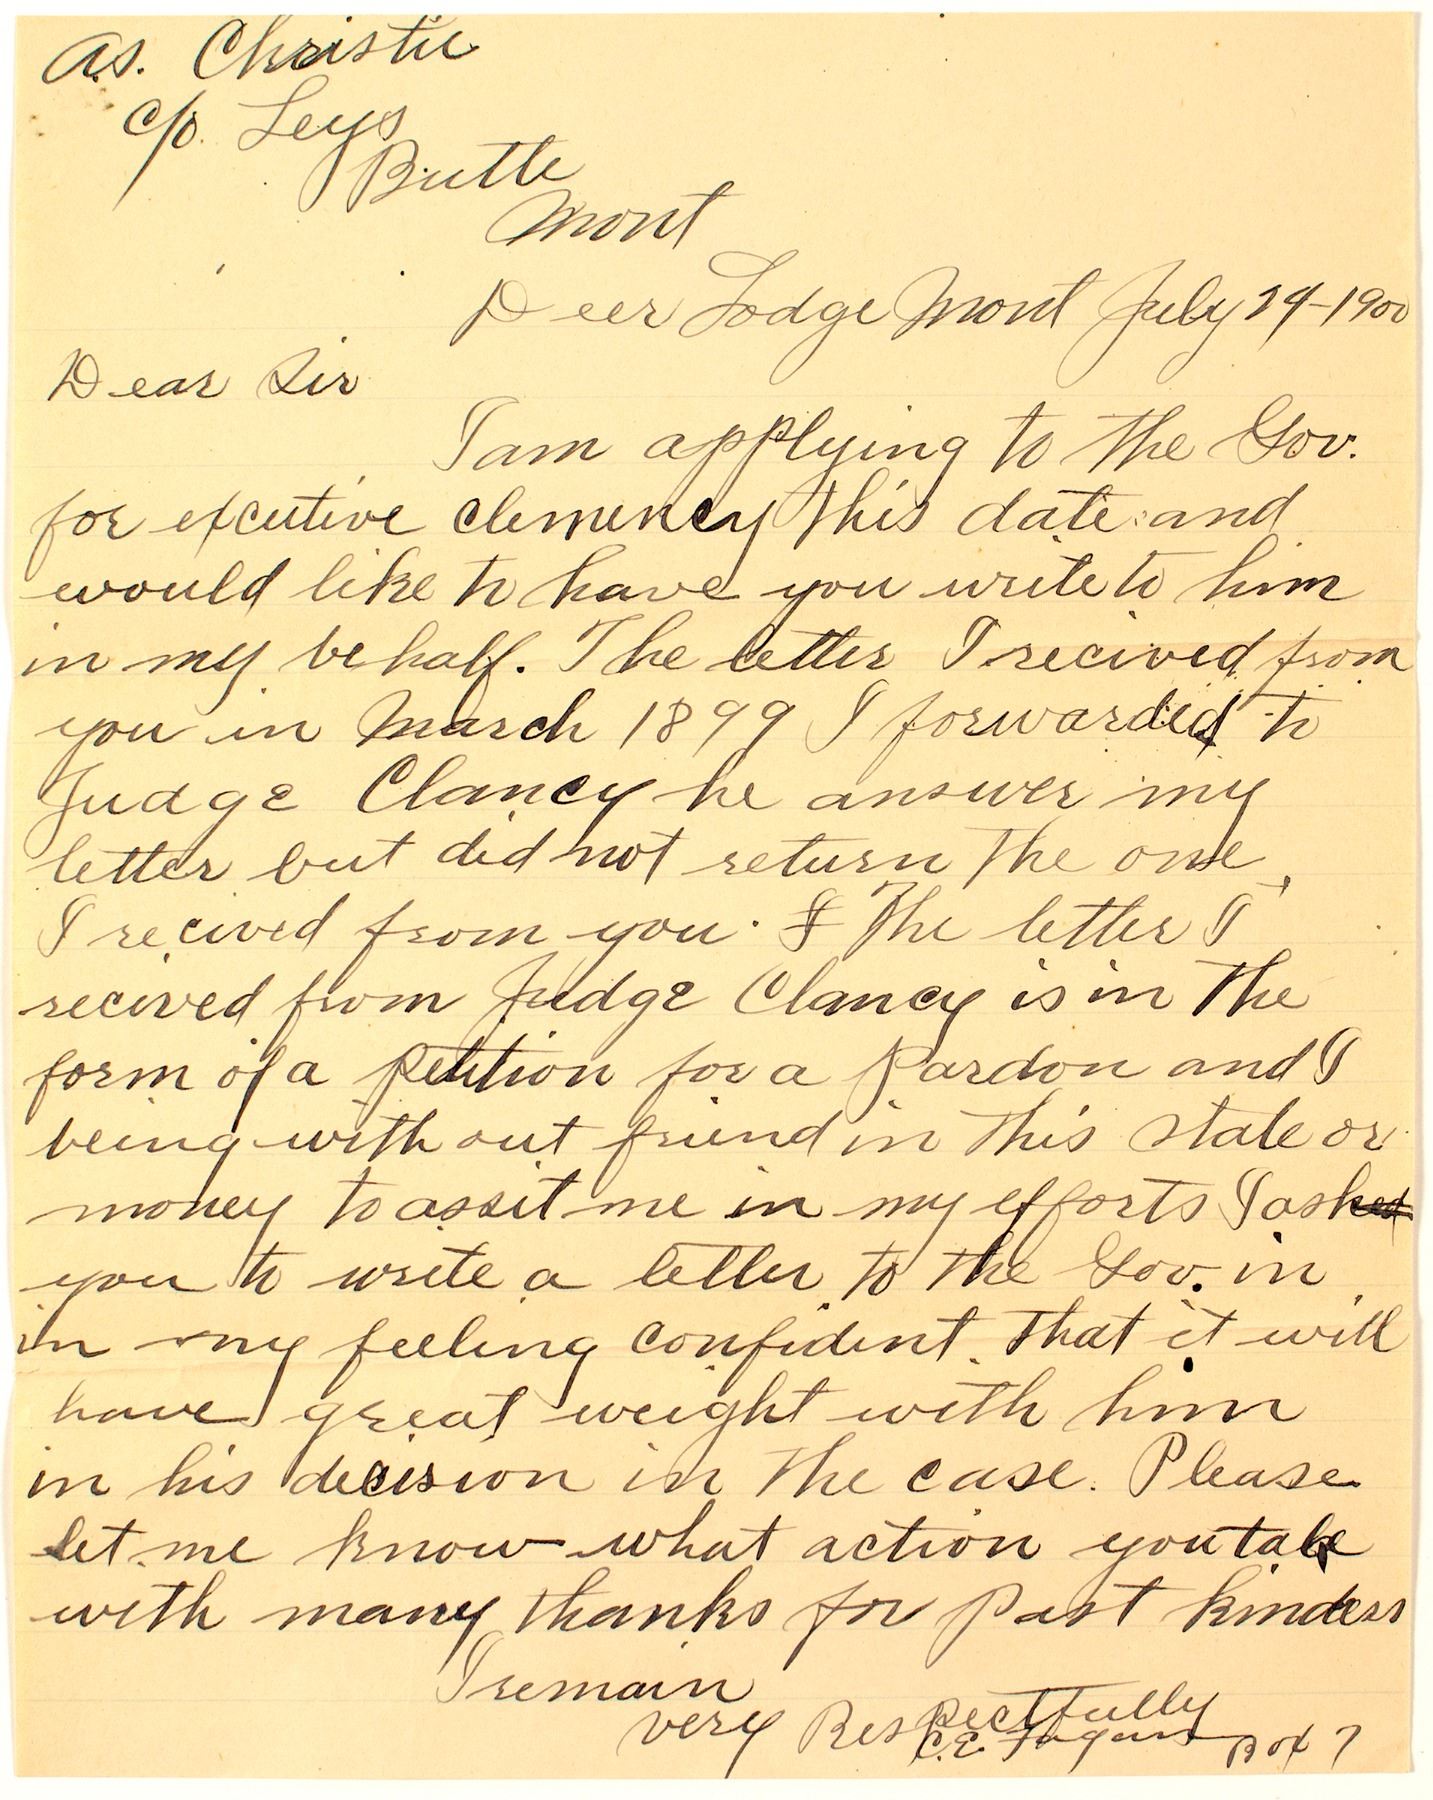 As. Christie
c/o. Leys
Butte
Mont
Deer Lodge Mont July 24-1900
Dear Sir
I am applying to the Gov.
for excutive clemency this date and
would like to have you write to him
in my behalf. The letter I recived from
you in March 1899 I forwarded to
Judge Clancy he answer my
letter but did not return the one
I recived from you. I The letter I
recived from Judge Clancy is in the
form of a petition for a Pardon and I
being with out friend in this state or
money to assit me in my efforts I asked
you to write a letter to the Gov. in
in my feeling confident that it will
have great weight with him
in his decision in the case. Please
let me know what action you take
with many thanks for Past kindess
I remain
very Respectfully
C.E. Box 7